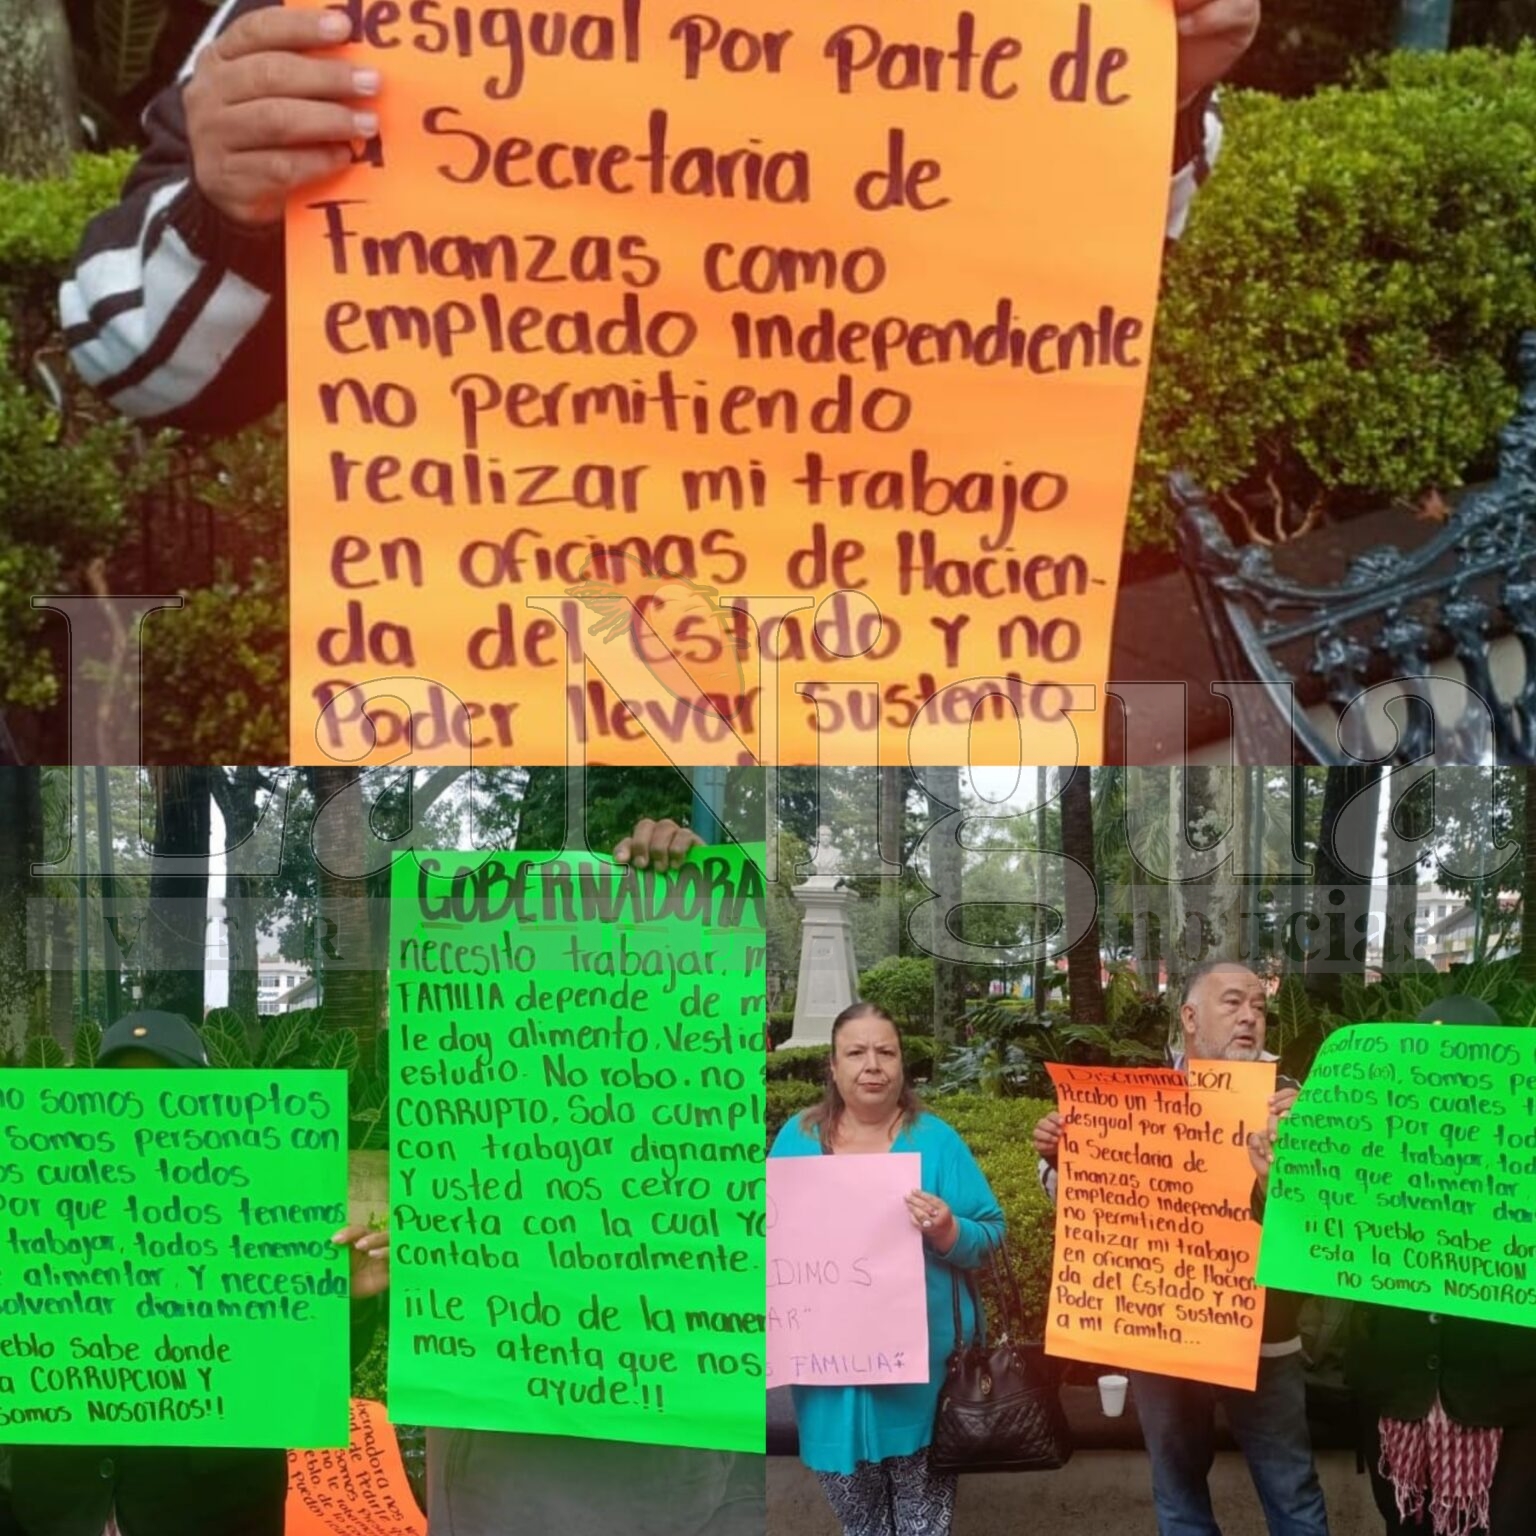 desigual por parte de
a Secretaria de
Finanzas como
empleado independiente
no permitiendo
realizar mi trabajo
en oficinas de Hacien-
da del Estado y no
Poder llevar sustento
La Nigua
VER
noticias
no somos corruptos
somos personas con
os cuales todos
Por que todos tenemos
trabajar, todos tenemos
alimentar. Y necesida
solventar diariamente.
eblo sabe donde
a CORRUPCION Y
somos NOSOTROS!!
GOBERNADORA
necesito trabajar, m
FAMILIA depende de m
le doy alimento. Vestid
estudio. No robo. no
CORRUPTO. Solo cumpl
con trabajar digname
Y usted nos cerro un
Puerta con la cual Yo
contaba laboralmente.
¡¡Le pido de la maner
mas atenta que nos
ayude.!!
DIMOS
AR"
FAMILIA
Discriminación
Recibo un trato
desigual por parte de
la Secretaria de
Finanzas como
empleado independien
no permitiendo
realizar mi trabajo
en oficinas de Hacien
da del Estado y no
Poder llevar sustento
a mi familia...
osotros no somos
tores(as), somos pe
erechos los cuales t
Tenemos por que tod
derecho de trabajar, tod
familia que alimentar
des que solventar diar
¡¡El pueblo sabe don
esta la CORRUPCION
no somos NOSOTROS